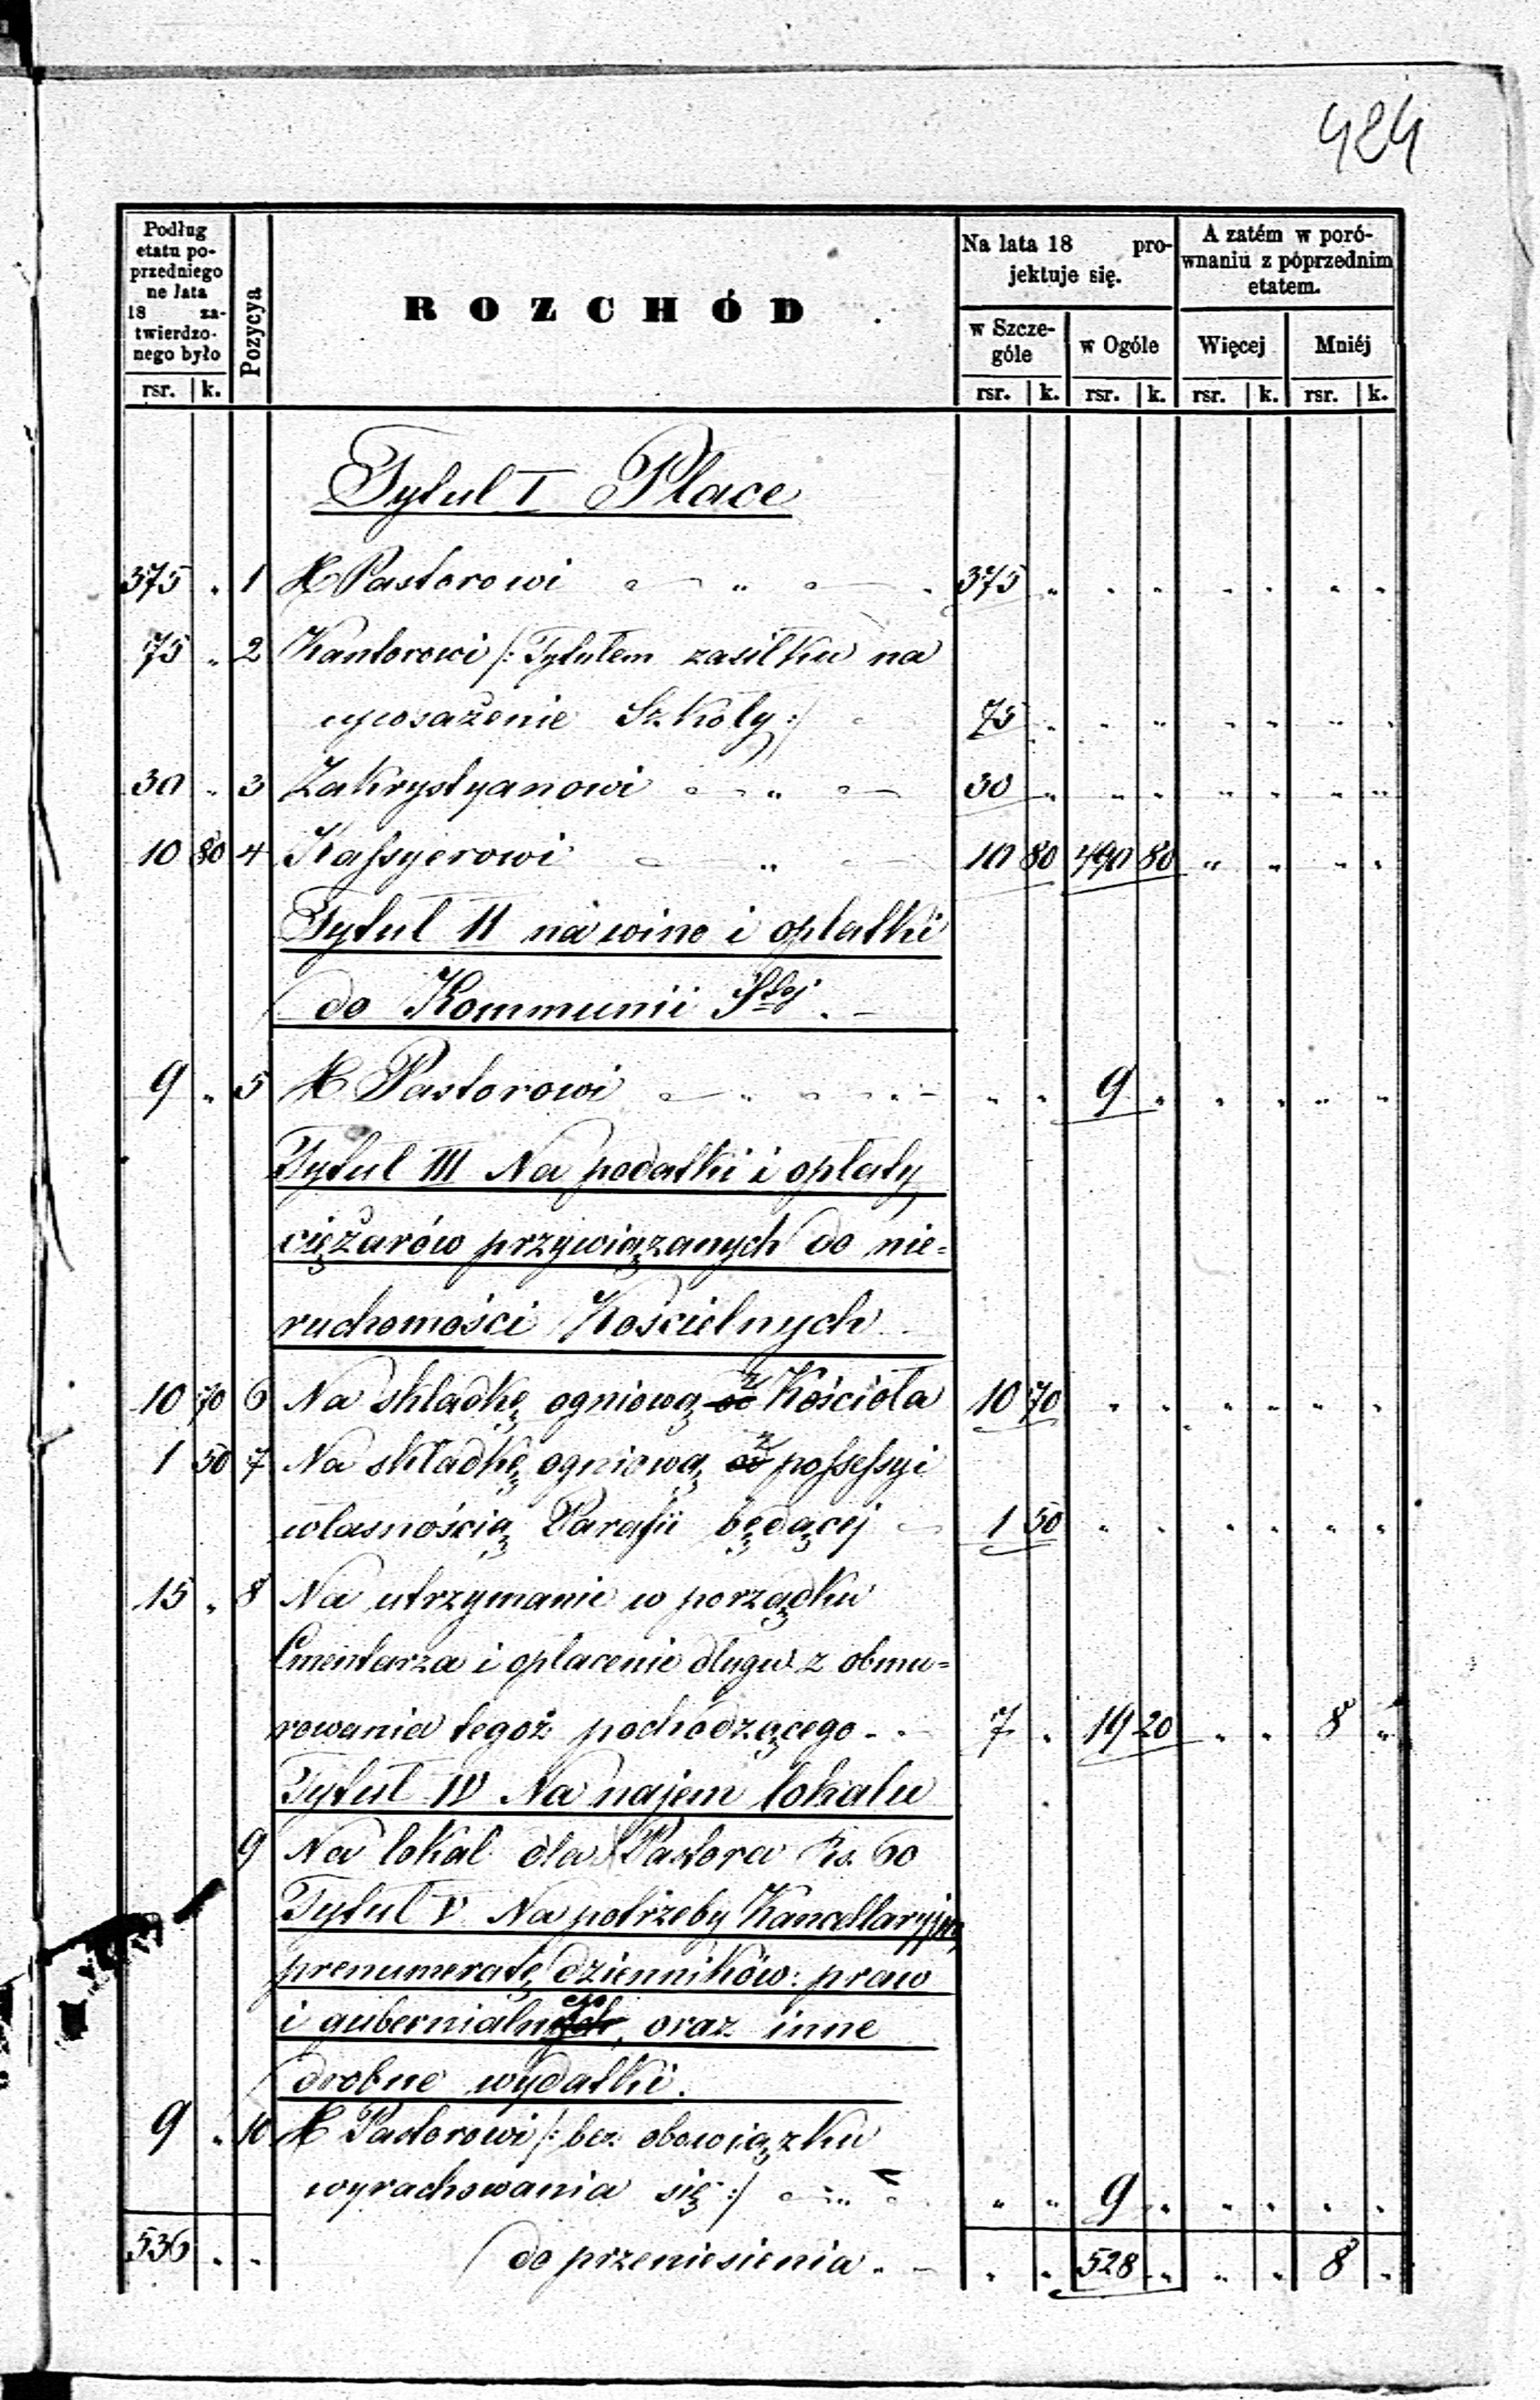 424
Podług etatu po-przedniego ne lata 18 za-twierdzo-nego było
Pozycya
ROZCHÓD
Na lata 18 pro-jektuje się.
A zatém w poró-wnaniu z póprzednim etatem.
w Szcze-góle
w Ogóle
Więcej
Mniéj
rsr. k. rsr. k. rsr. k. rsr. k. rsr. k.
Tytuł I Płace
375 „ 1 X Pastorowi „ 375 „ „ „ „ „ „ „
75 „ 2 Kantorowi /: Tytułem zasiłku na
wyposażenie Szkoły :/ 75 „ „ „ „ „ „ „
30 „ 3 Zakrystyanowi „ 30 „ „ „ „ „ „ „
10 80 4 Kassyerowi „ 10 80 490 80 „ „ „ „
Tytuł II na wino i opłatki
do Kommunii Stej. -
9 „ 5 X Pastorowi „ „ „ 9 „ „ „ „ „
Tytuł III Na podatki i opłaty
ciężarów przywiązanych do nie=
ruchomości Kościelnych
10 70 6 Na składkę ogniową od z Kościoła 10 70 „ „ „ „ „ „
1 50 7 Na składkę ogniową od z possessyi
własnością Parafii będącej 1 50 „ „ „ „ „ „
15 „ 8 Na utrzymanie w porządku
Cmentarza i opłacenie długu z obmu=
rowania tegoż pochodzącego. - 7 „ 19 20 „ „ 8 „
Tytuł IV Na najem lokalu
9 Na lokal dla Pastora Rs. 60
Tytuł V Na potrzeby Kancellaryjne,
prenumeratę dzienników: praw
i gubernialnego, oraz inne
drobne wydatki.
9 „ 10 X Pastorowi /: bez obowiązku
wyrachowania się :/ „ „ „ 9 „ „ „ „ „
536 „ „ do przeniesienia. - „ „ 528 „ „ „ 8 „